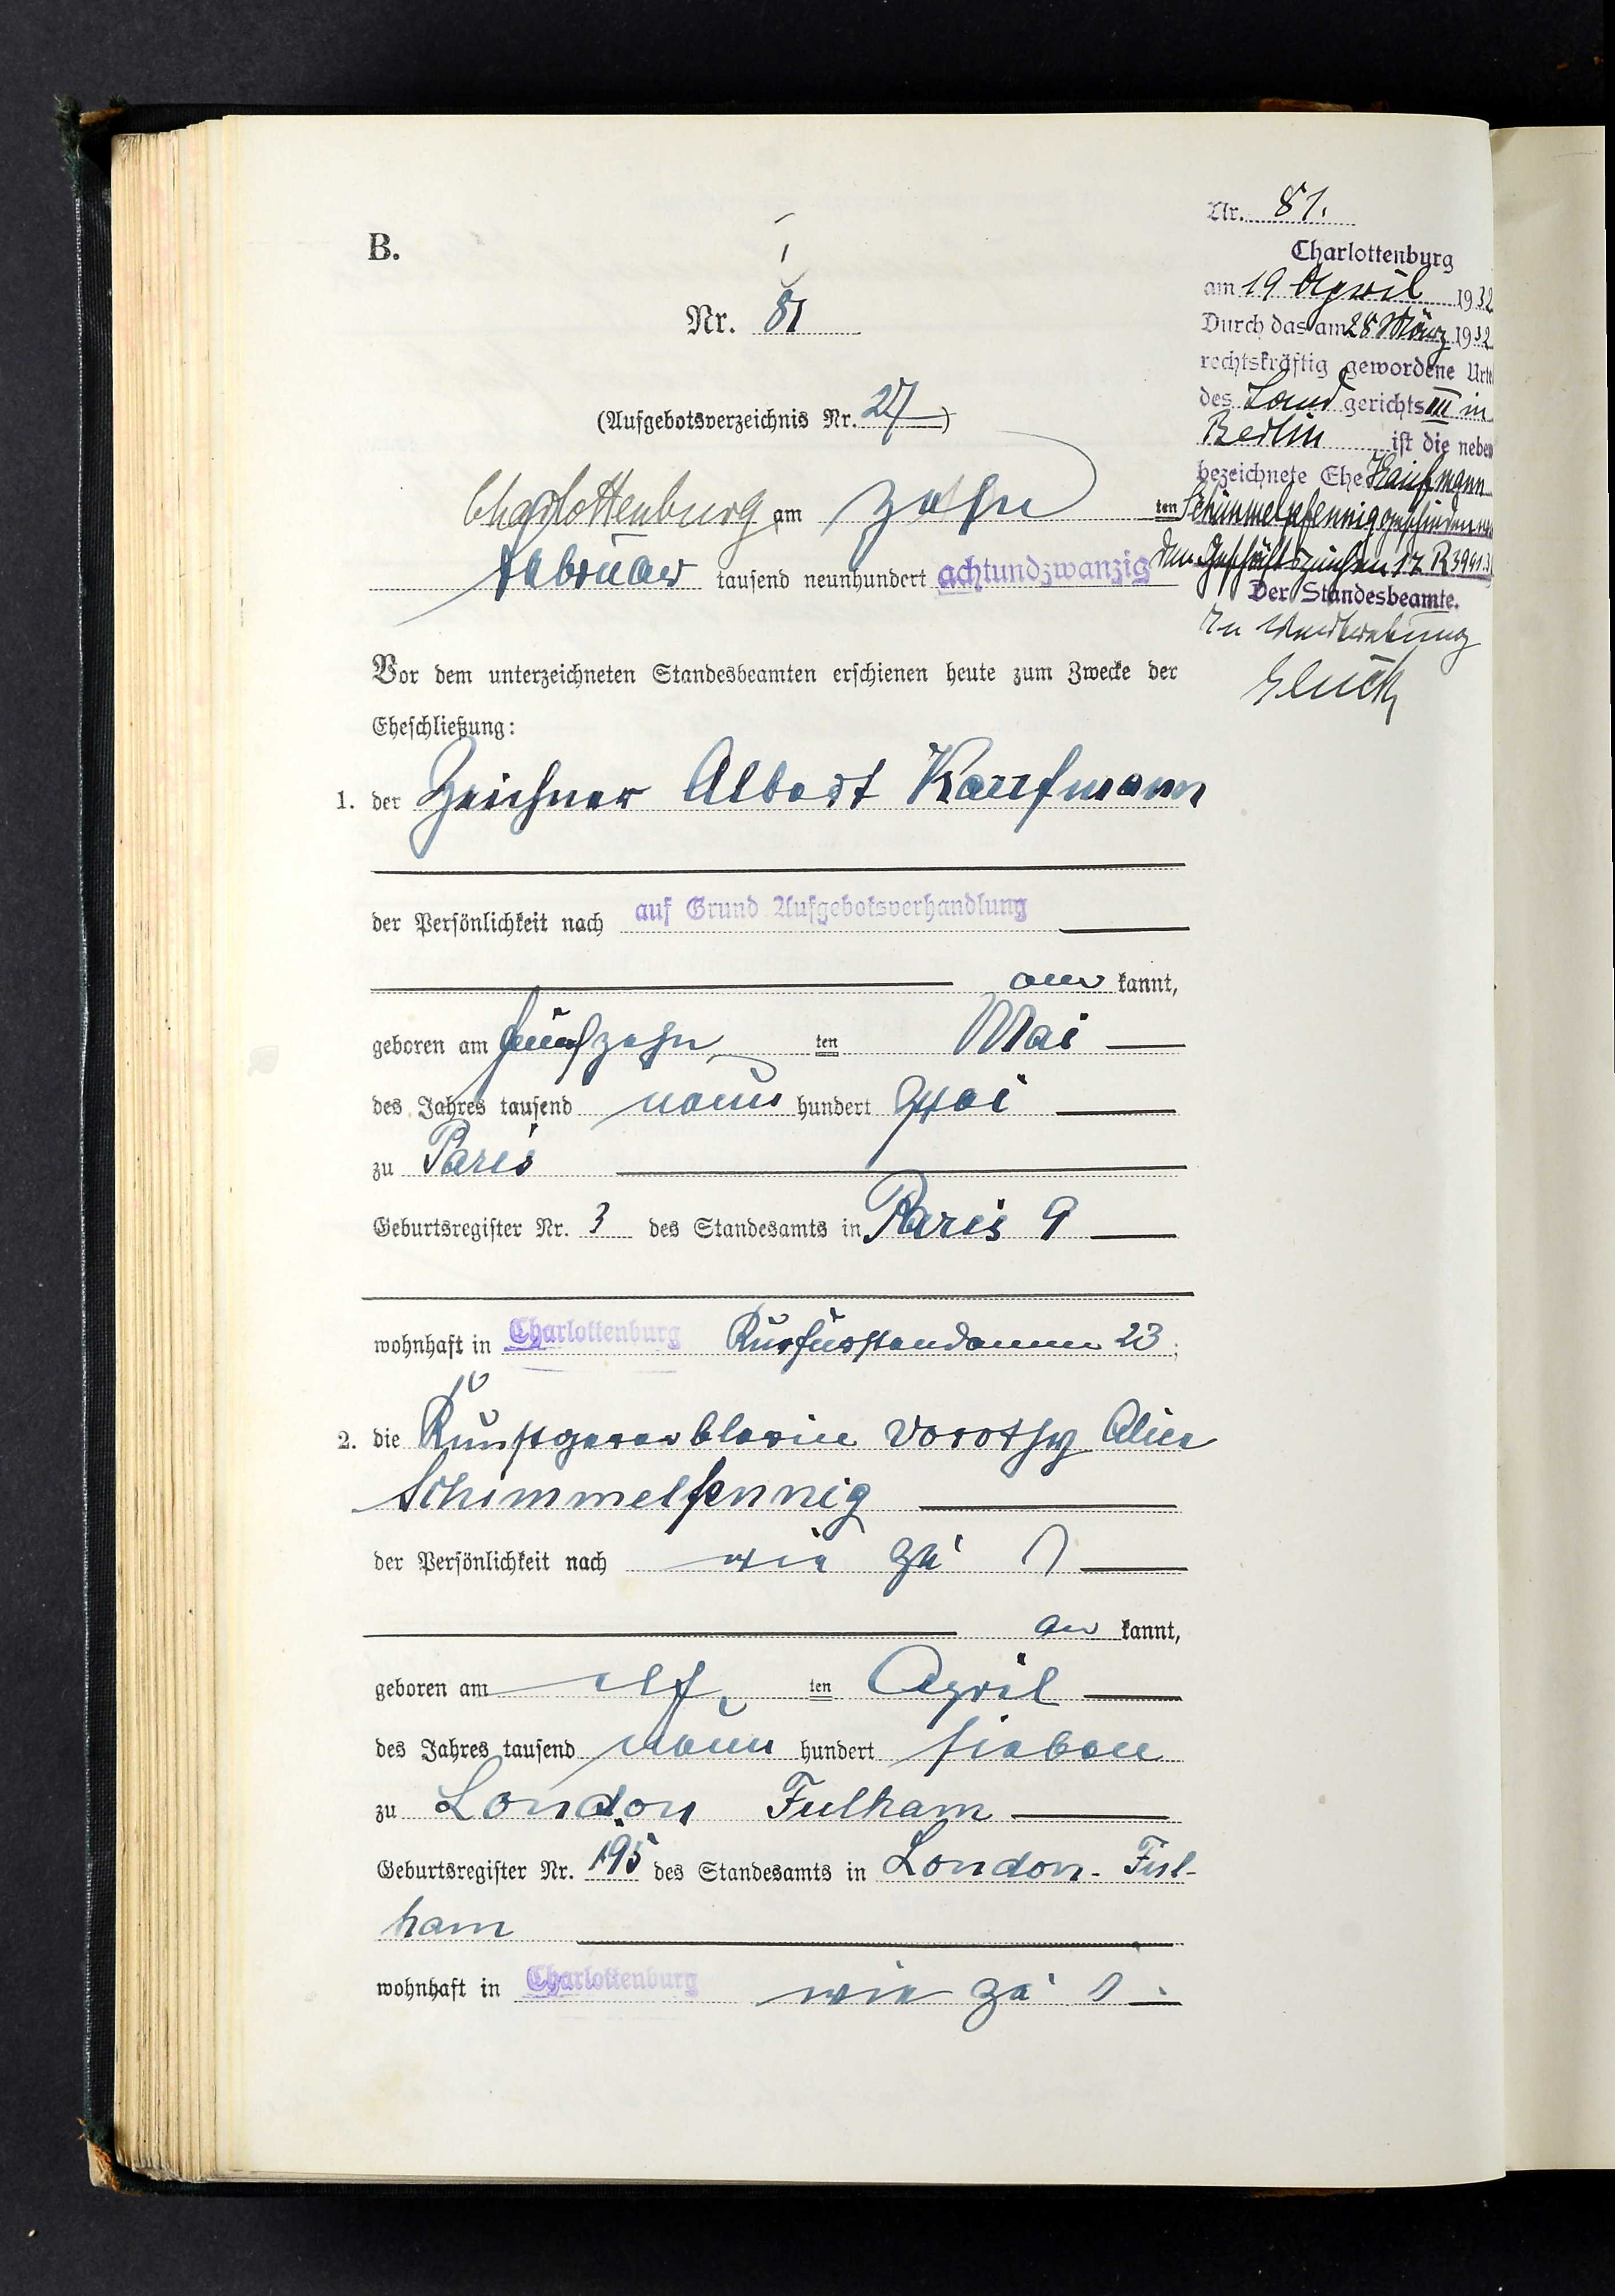 B.
Nr. 81
(Aufgebotsverzeichnis Nr. 27)
Charlottenburg am zehn ten
Februar tausend neunhundert achtundzwanzig
Vor dem unterzeichneten Standesbeamten erschienen heute zum Zwecke der
Eheschließung:
1. der Zeichner Albert Kaufmann
der Persönlichkeit nach auf Grund Aufgebotsverhandlung
aner kannt,
geboren am fünfzehn ten Mai
des Jahres tausend neun hundert zwei
zu Paris
Geburtsregister Nr. 3 des Standesamts in Paris 9
wohnhaft in Charlottenburg Kurfürstendamm 23;
2. die Kunstgewerblerin Dorothy Alice
Schimmelfennig
der Persönlichkeit nach wie zu 1
aner kannt,
geboren am elf ten April
des Jahres tausend neun hundert sieben
zu London Fulham
Geburtsregister Nr. 195 des Standesamts in London-Ful-
ham
wohnhaft in Charlottenburg wie zu 1.
Nr. 81.
Charlottenburg
am 19 April 1932
Durch das am 28 März 1932
rechtskräftig gewordene Urte
des Land gerichts III in
Berlin ist die neben
bezeichnete Ehe Kaufmann
Schimmelpfennig geschieden
Geschäftszeichen 17 R 3941.31
Der Standesbeamte.
In Vertretung
Gluck